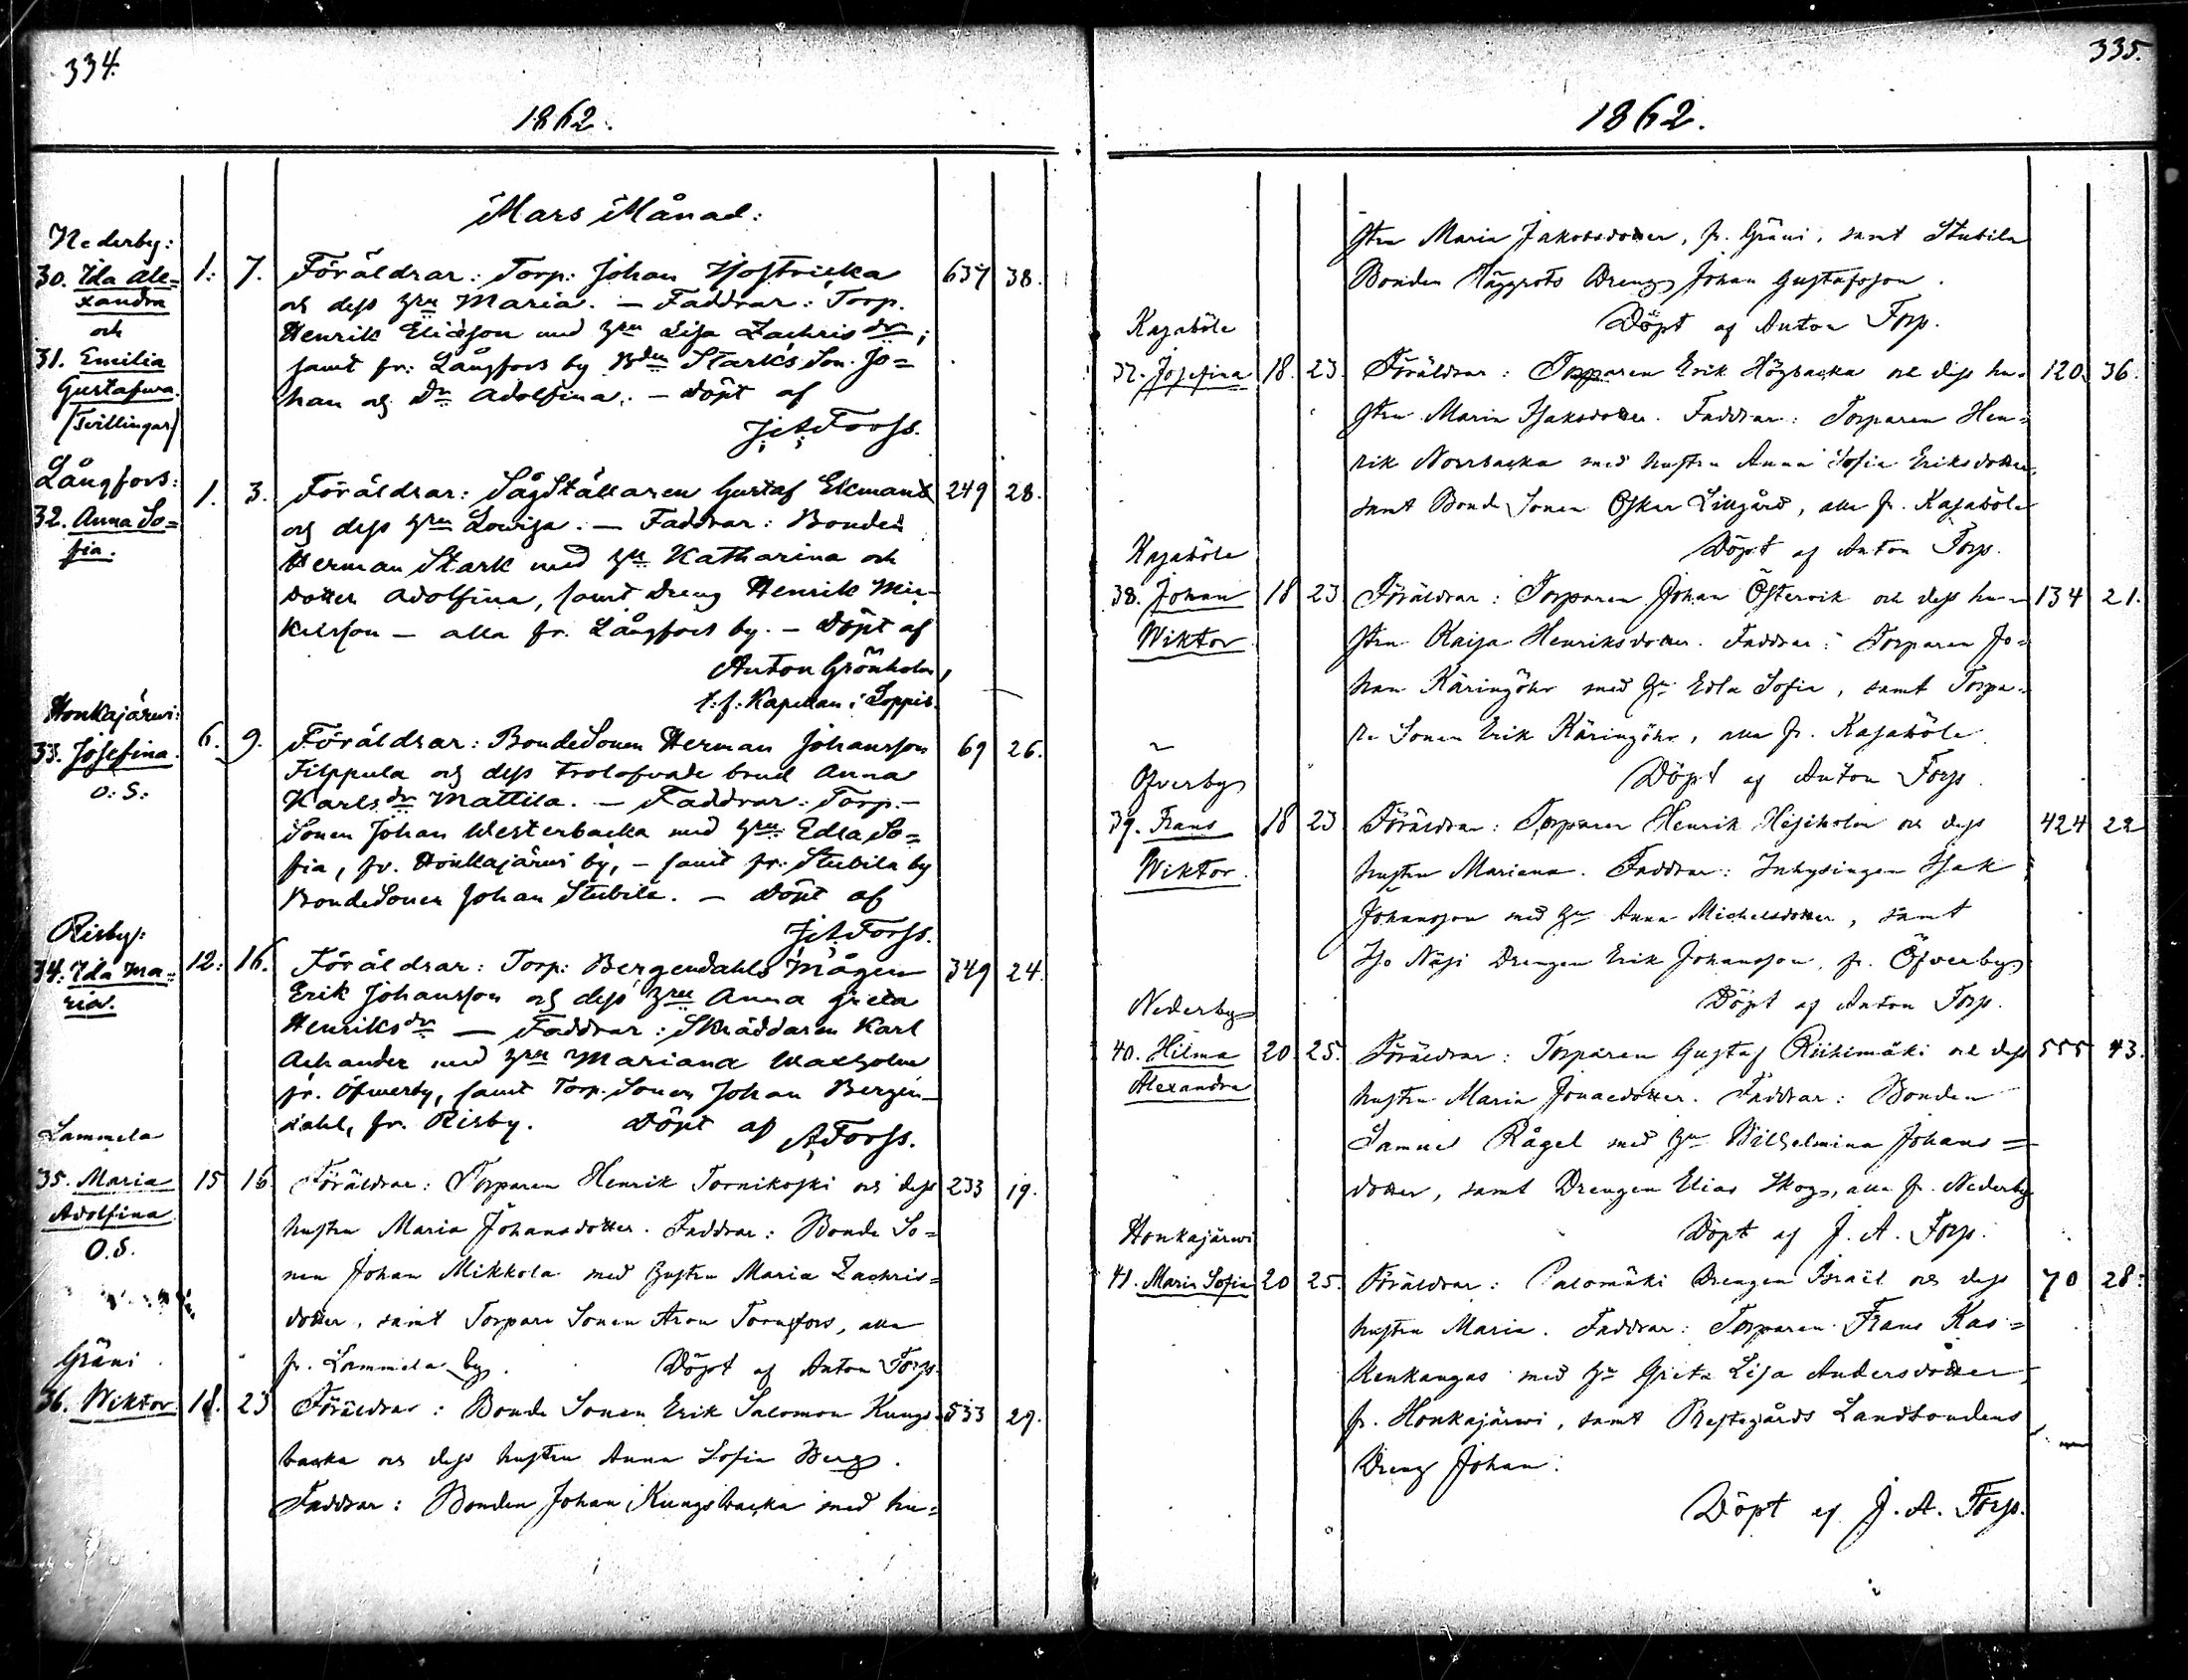 334.
1862.
Mars Månad:
Nederby:
30. Ida Ale=
xandra
och
31. Emilia
Gustafwa.
(Tvillingar)
1. 7. Föräldrar: Torp: Johan
och dess hru Maria. — Faddrar: Torp.
Henrik Ericsson med hru Lisa Zachris dr;
samt fr: Långfors by Bden Starks Son Jo=
han och Dr Adolfina. — Döpt af
J: A: Forss.
637 38.
Långfors:
32. Anna So=
fia.
1. 3. Föräldrar: SågStällaren Gustaf Ekman
och dess hru Lowisa. — Faddrar: Bonden
Herman Stark med hru Katharina och
dotter Adolfina, samt Dreng Henrik Mic-
kelsson — alla fr. Långfors by. — Döpt af
Anton Grönholm,
t: f: Kapellan i Loppis.
249 28.
Honkajärwi:
33. Josefina.
O: S:
6. 9. Föräldrar: BondeSonen Herman Johansson
Filppula och dess trolofvade brud Anna
Karls dr Mattila. — Faddrar: Torp.-
Sonen Johan Westerbacka med hru Edla So=
fia, fr. Honkajärwi by, — samt fr: Stubila by
BondeSonen Johan Stubila. — Döpt af
J: A: Forss.
69 26.
Risby:
34. Ida Ma=
ria.
12: 16. Föräldrar: Torp: Bergendahls Mågen
Erik Johansson och dess hru Anna Greta
Henriks dr — Faddrar: Skräddaren Karl
Achander med hru Mariana Waxholm
fr. Öfwerby, samt Torp. Sonen Johan Bergen-
dahl, fr. Risby. Döpt af A. Forss.
349 24.
Lammela
35. Maria
Adolfina
O.S.
15 16 Föräldrar: Torparen Henrik Tornikoski och dess
hustru Maria Johansdotter. Faddrar: Bonde So=
nen Johan Mikkola med hustru Maria Zachris=
dotter, samt Torpare Sonen Aron Tornfors, alla
fr. Lammela by. Döpt af Anton Forss.
233 19.
Gräni
36. Wiktor
18. 23 Föräldrar: Bonde Sonen Erik Salomon Kungs-
backa och dess hustru Anna Sofia Berg.
Faddrar: Bonden Johan Kungsbacka med hu=
533 29.
335.
1862.
stru Maria Jakobsdotter, fr. Gräni, samt Stubila
Bonden Dreng Johan Gustafsson.
Döpt af Anton Forss.
Kajaböle
37. Josefina 18. 23. Föräldrar: Torparen Erik Högbacka och dess hu- 120. 36.
stru Maria Isaksdotter. Faddrar: Torparen Hen=
rik Norrbacka med hustru Anna Sofia Eriksdotter,
samt Bonde Sonen Oskar Lillgård, alla fr. Kajaböle
Döpt af Anton Forss.
Kajaböle
38. Johan
Wiktor
18 23 Föräldrar: Torparen Johan Östervik och dess hu- 134 21.
stru Kaisa Henriksdotter. Faddrar: Torparen Jo=
han Käringöhr med hu Edla Sofia, samt Torpa-
re Sonen Erik Käringöhr, alla fr. Kajaböle
Döpt af Anton Forss.
Öfverby
39. Frans
Wiktor.
18 23 Föräldrar: Torparen Henrik och dess 424 22
hustru Mariana. Faddrar: Inhysingen Isak
Johansson med hu Anna Michelsdotter, samt
Iso Näsi Drengen Erik Johansson, fr. Öfverby
Döpt af Anton Forss.
Nederby
40. Hilma
Alexandra
20 25. Föräldrar: Torparen Gustaf Riihimäki och dess 555 43.
hustru Maria Jonaedotter. Faddrar: Bonden
Samuel Rågel med hu Wilhelmina Johans=
dotter, samt Drengen Elias Skog, alla fr. Nederby
Döpt af J. A. Forss.
Honkajärwi
41. Maria Sofia 20 25. Föräldrar: Palomäki Drengen Israël och dess 70 28.
hustru Maria. Faddrar: Torparen Frans Kas=
kenkangas med hu Greta Lisa Andersdotter,
fr. Honkajärwi, samt Prestegårds Landbondens
Dreng Johan.
Döpt af J. A. Forss.